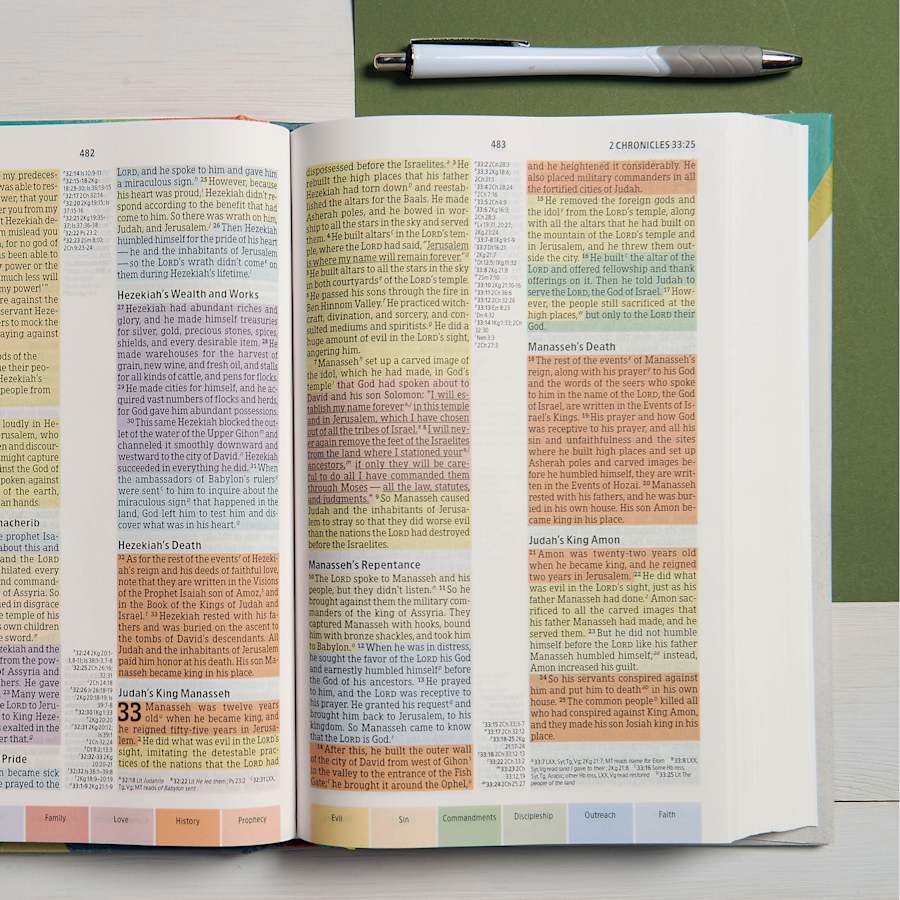 482
my predeces-
was able to res-
wer, that your
er you from my
et Hezekiah de-
n mislead you
m, for no god of
as been able to
y power or the
much less will
my power!'"
re against the
servant Heze-
ers to mock the
aying against
ods of the
e their peo-
Hezekiah's
people from
loudly in He-
rusalem, who
en and discour-
might capture
inst the God of
of the earth,
an hands.
nacherib
e prophet Isa-
about this and
and the LORD
hilated every
and command-
of Assyria. So
ed in disgrace
temple of his
own children
e sword.
zekiah and the
from the pow-
of Assyria and
hers. He gave
23 Many were
LORD to Jeru-
to King Heze-
exalted in the
er that.
Pride
became sick
prayed to the
LORD, and he spoke to him and gave him
a miraculous sign. 25 However, because
his heart was proud, Hezekiah didn't re-
spond according to the benefit that had
come to him. So there was wrath on him,
Judah, and Jerusalem. 26 Then Hezekiah
humbled himself for the pride of his heart
— he and the inhabitants of Jerusalem
— so the LORD's wrath didn't come on
them during Hezekiah's lifetime.
Hezekiah's Wealth and Works
27 Hezekiah had abundant riches and
glory, and he made himself treasuries
for silver, gold, precious stones, spices,
shields, and every desirable item. 28 He
made warehouses for the harvest of
grain, new wine, and fresh oil, and stalls
for all kinds of cattle, and pens for flocks.
29 He made cities for himself, and he ac-
quired vast numbers of flocks and herds,
for God gave him abundant possessions.
30 This same Hezekiah blocked the out-
let of the water of the Upper Gihon and
channeled it smoothly downward and
westward to the city of David. Hezekiah
succeeded in everything he did. 31 When
the ambassadors of Babylon's rulers
were sent to him to inquire about the
miraculous sign that happened in the
land, God left him to test him and dis-
cover what was in his heart.
Hezekiah's Death
32 As for the rest of the events of Hezeki-
ah's reign and his deeds of faithful love,
note that they are written in the Visions
of the Prophet Isaiah son of Amoz, and
in the Book of the Kings of Judah and
Israel. 33 Hezekiah rested with his fa-
thers and was buried on the ascent to
the tombs of David's descendants. All
Judah and the inhabitants of Jerusalem
paid him honor at his death. His son Ma-
nasseh became king in his place.
Judah's King Manasseh
33 Manasseh was twelve years
old when he became king, and
he reigned fifty-five years in Jerusa-
lem. 2 He did what was evil in the LORD's
sight, imitating the detestable prac-
tices of the nations that the LORD had
Family Love History Prophecy
483
2 CHRONICLES 33:25
dispossessed before the Israelites. 3 He
rebuilt the high places that his father
Hezekiah had torn down and reestab-
lished the altars for the Baals. He made
Asherah poles, and he bowed in wor-
ship to all the stars in the sky and served
them. 4 He built altars in the LORD's tem-
ple, where the LORD had said, "Jerusalem
is where my name will remain forever."
5 He built altars to all the stars in the sky
in both courtyards of the LORD's temple.
6 He passed his sons through the fire in
Ben Hinnom Valley. He practiced witch-
craft, divination, and sorcery, and con-
sulted mediums and spiritists. He did a
huge amount of evil in the LORD's sight,
angering him.
7 Manasseh set up a carved image of
the idol, which he had made, in God's
temple that God had spoken about to
David and his son Solomon: "I will es-
tablish my name forever in this temple
and in Jerusalem, which I have chosen
out of all the tribes of Israel. 8 I will nev-
er again remove the feet of the Israelites
from the land where I stationed your
ancestors, if only they will be care-
ful to do all I have commanded them
through Moses — all the law, statutes,
and judgments." 9 So Manasseh caused
Judah and the inhabitants of Jerusa-
lem to stray so that they did worse evil
than the nations the LORD had destroyed
before the Israelites.
Manasseh's Repentance
10 The LORD spoke to Manasseh and his
people, but they didn't listen. 11 So he
brought against them the military com-
manders of the king of Assyria. They
captured Manasseh with hooks, bound
him with bronze shackles, and took him
to Babylon. 12 When he was in distress,
he sought the favor of the LORD his God
and earnestly humbled himself before
the God of his ancestors. 13 He prayed
to him, and the LORD was receptive to
his prayer. He granted his request and
brought him back to Jerusalem, to his
kingdom. So Manasseh came to know
that the LORD is God.
14 After this, he built the outer wall
of the city of David from west of Gihon
in the valley to the entrance of the Fish
Gate; he brought it around the Ophel,
and he heightened it considerably. He
also placed military commanders in all
the fortified cities of Judah.
15 He removed the foreign gods and
the idol from the LORD's temple, along
with all the altars that he had built on
the mountain of the LORD's temple and
in Jerusalem, and he threw them out-
side the city. 16 He built the altar of the
LORD and offered fellowship and thank
offerings on it. Then he told Judah to
serve the LORD, the God of Israel. 17 How-
ever, the people still sacrificed at the
high places, but only to the LORD their
God.
Manasseh's Death
18 The rest of the events of Manasseh's
reign, along with his prayer to his God
and the words of the seers who spoke
to him in the name of the LORD, the God
of Israel, are written in the Events of Is-
rael's Kings. 19 His prayer and how God
was receptive to his prayer, and all his
sin and unfaithfulness and the sites
where he built high places and set up
Asherah poles and carved images be-
fore he humbled himself, they are writ-
ten in the Events of Hozai. 20 Manasseh
rested with his fathers, and he was bur-
ied in his own house. His son Amon be-
came king in his place.
Judah's King Amon
21 Amon was twenty-two years old
when he became king, and he reigned
two years in Jerusalem. 22 He did what
was evil in the LORD's sight, just as his
father Manasseh had done. Amon sac-
rificed to all the carved images that
his father Manasseh had made, and he
served them. 23 But he did not humble
himself before the LORD like his father
Manasseh humbled himself; instead,
Amon increased his guilt.
24 So his servants conspired against
him and put him to death in his own
house. 25 The common people killed all
who had conspired against King Amon,
and they made his son Josiah king in his
place.
Evil Sin Commandments Discipleship Outreach Faith